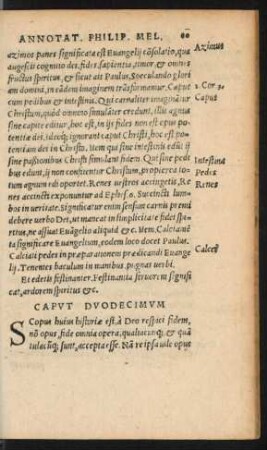 ANNOTAT. PHILIP. MEL. 60
azimos panes significata est Euangelij cōsolatio, qua
augescit cognitio dei, fides, sapientia, timor, & omnis
fructus spiritus, & sicut ait Paulus, Speculando glori
am domini, in eādem imaginem trāsformamur. Caput
cum pedibus & intestinis. Qui carnaliter imaginātur
Christum, quasi omnino simulacr̄ credunt, illi agnum
sine capite editur, hoc est, in ijs fides non est cui po
tentia dei, ideoq; ignorant caput Christi, hoc est po
tentiam dei in Christo. Item qui sine intestinis edūt ij
sine passionibus Christi simulant fidem. Qui sine pedi
bus edunt, ij non confitentur Christum, propterea to
tum agnum edi oportet. Renes uestros accingetis, Re
nes accincti exponuntur ad Ephes. 6. Succincti lum
bos in ueritate. Significatur enim sensum carnis premi
debere uerbo Dei, ut maneat in simplicitate fides spi
ritus, ne assuat Euāgelio aliquid &c. Item, Calciamē
ta significare Euangelium, eodem loco docet Paulus.
Calciati pedes in præparationem prædicandi Euange
lij. Tenentes baculum in manibus, pugnæ uerbi.
Et edetis festinanter. Festinantia feruorem signifi
cat, ardorem spiritus &c.
CAPVT DVODECIMVM
SCopus huius historiæ est, à Deo respici fidem,
nō opus, fide omnia opera, qualiacunq; & quā
tulacūq; sunt, accepta esse. Nā re ipsa uile opus
Azimus
2. Cor 3.
Caput
Intestina
Pedes
Renes